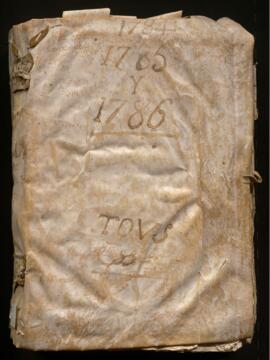 1784
1785
Y
1786
TOVS